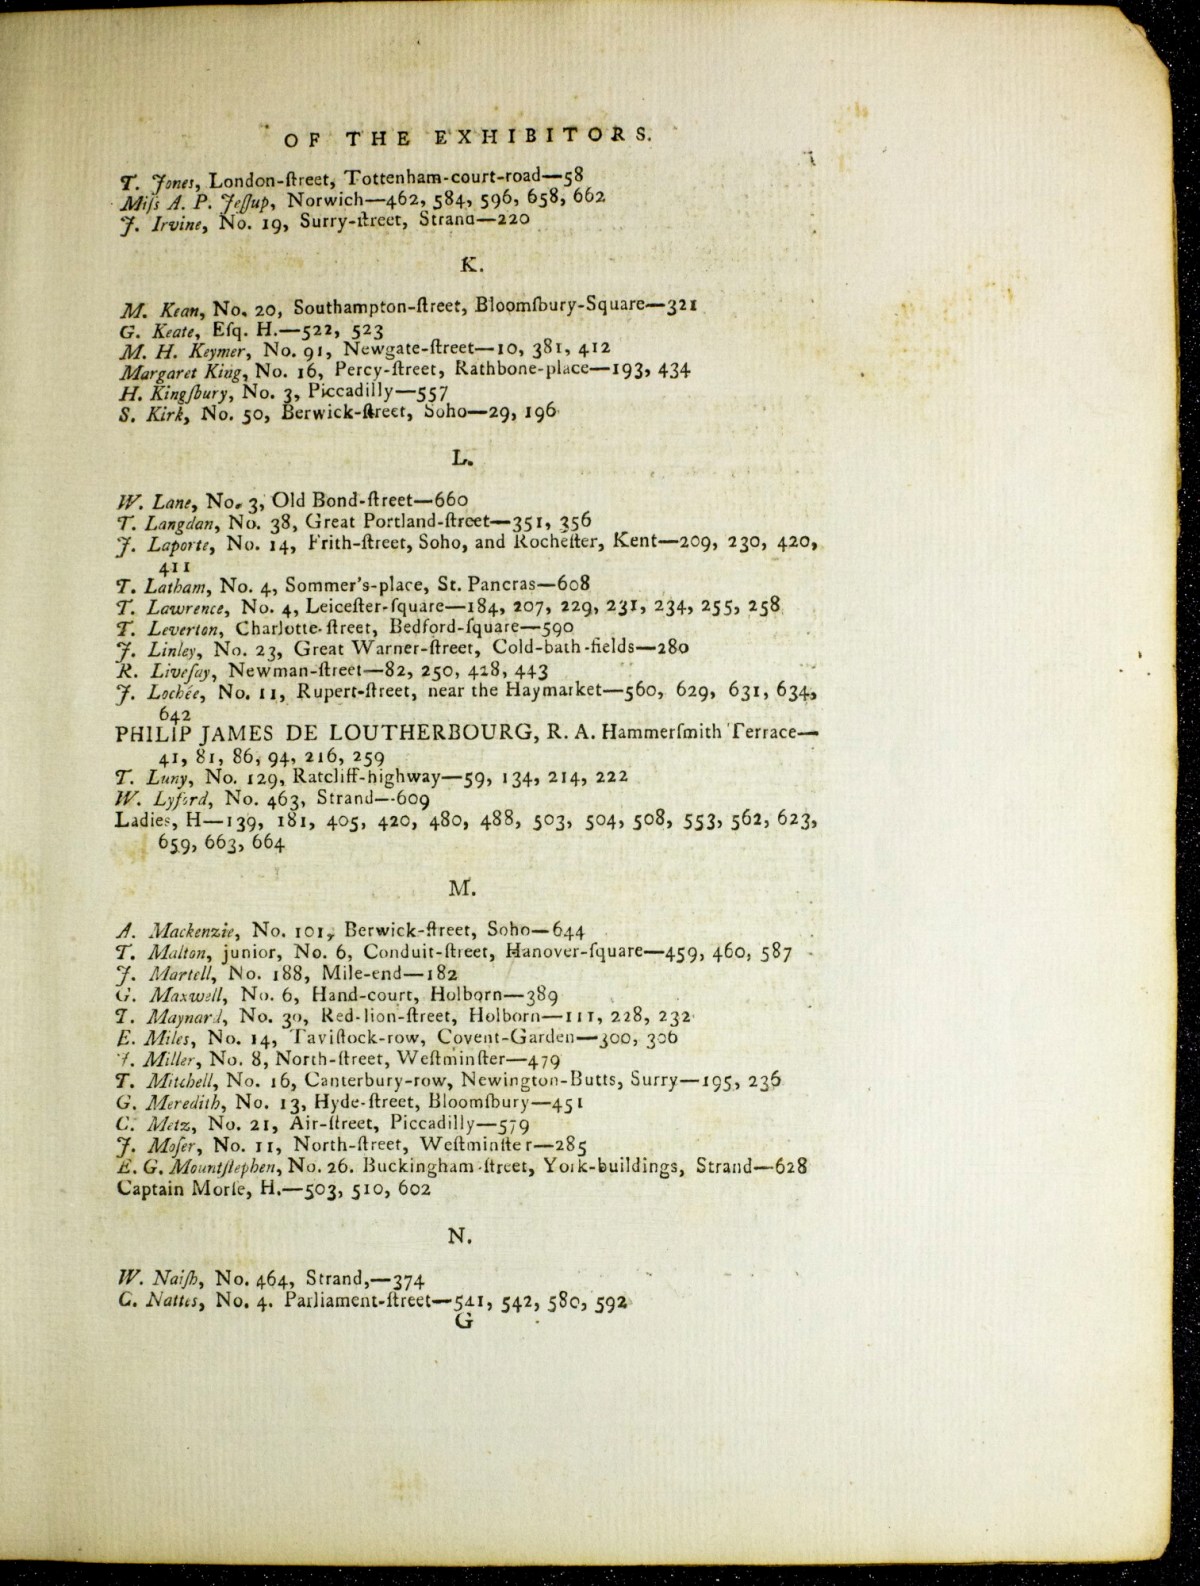 OF THE EXHIBITORS.
T. Jones, London-ſtreet, Tottenham-court-road—58
Miſs A. P. Jeſſup, Norwich—462, 584, 596, 658, 662
J. Irvine, No. 19, Surry-ſtreet, Strand—220
K.
M. Kean, No. 20, Southampton-ſtreet, Bloomſbury-Square—321
G. Keate, Eſq. H.—522, 523
M. H. Keymer, No. 91, Newgate-ſtreet—10, 381, 412
Margaret King, No. 16, Percy-ſtreet, Rathbone-place—193, 434
H. Kingſbury, No. 3, Piccadilly—557
S. Kirk, No. 50, Berwick-ſtreet, Soho—29, 196
L.
W. Lane, No. 3, Old Bond-ſtreet—660
T. Langdan, No. 38, Great Portland-ſtreet—351, 356
J. Laporte, No. 14, Frith-ſtreet, Soho, and Rocheſter, Kent—209, 230, 420,
411
T. Latham, No. 4, Sommer's-place, St. Pancras—608
T. Lawrence, No. 4, Leiceſter-ſquare—184, 207, 229, 231, 234, 255, 258
T. Leverton, Charlotte-ſtreet, Bedford-ſquare—590
J. Linley, No. 23, Great Warner-ſtreet, Cold-bath-fields—280
R. Liveſay, Newman-ſtreet—82, 250, 428, 443
J. Lochée, No. 11, Rupert-ſtreet, near the Haymarket—560, 629, 631, 634,
642
PHILIP JAMES DE LOUTHERBOURG, R. A. Hammerſmith Terrace—
41, 81, 86, 94, 216, 259
T. Luny, No. 129, Ratcliff-highway—59, 134, 214, 222
W. Lyford, No. 463, Strand—609
Ladies, H—139, 181, 405, 420, 480, 488, 503, 504, 508, 553, 562, 623,
659, 663, 664
M.
A. Mackenzie, No. 101, Berwick-ſtreet, Soho—644
T. Malton, junior, No. 6, Conduit-ſtreet, Hanover-ſquare—459, 460, 587
J. Martell, No. 188, Mile-end—182
G. Maxwell, No. 6, Hand-court, Holborn—389
T. Maynard, No. 30, Red-lion-ſtreet, Holborn—111, 228, 232
E. Miles, No. 14, Taviſtock-row, Covent-Garden—300, 306
J. Miller, No. 8, North-ſtreet, Weſtminſter—479
T. Mitchell, No. 16, Canterbury-row, Newington-Butts, Surry—195, 236
G. Meredith, No. 13, Hyde-ſtreet, Bloomſbury—451
C. Metz, No. 21, Air-ſtreet, Piccadilly—579
J. Moſer, No. 11, North-ſtreet, Weſtminſter—285
E. G. Mountſtephen, No. 26. Buckingham-ſtreet, York-buildings, Strand—628
Captain Morſe, H.—503, 510, 602
N.
W. Naiſh, No. 464, Strand,—374
C. Nattes, No. 4. Parliament-ſtreet—541, 542, 580, 592
G